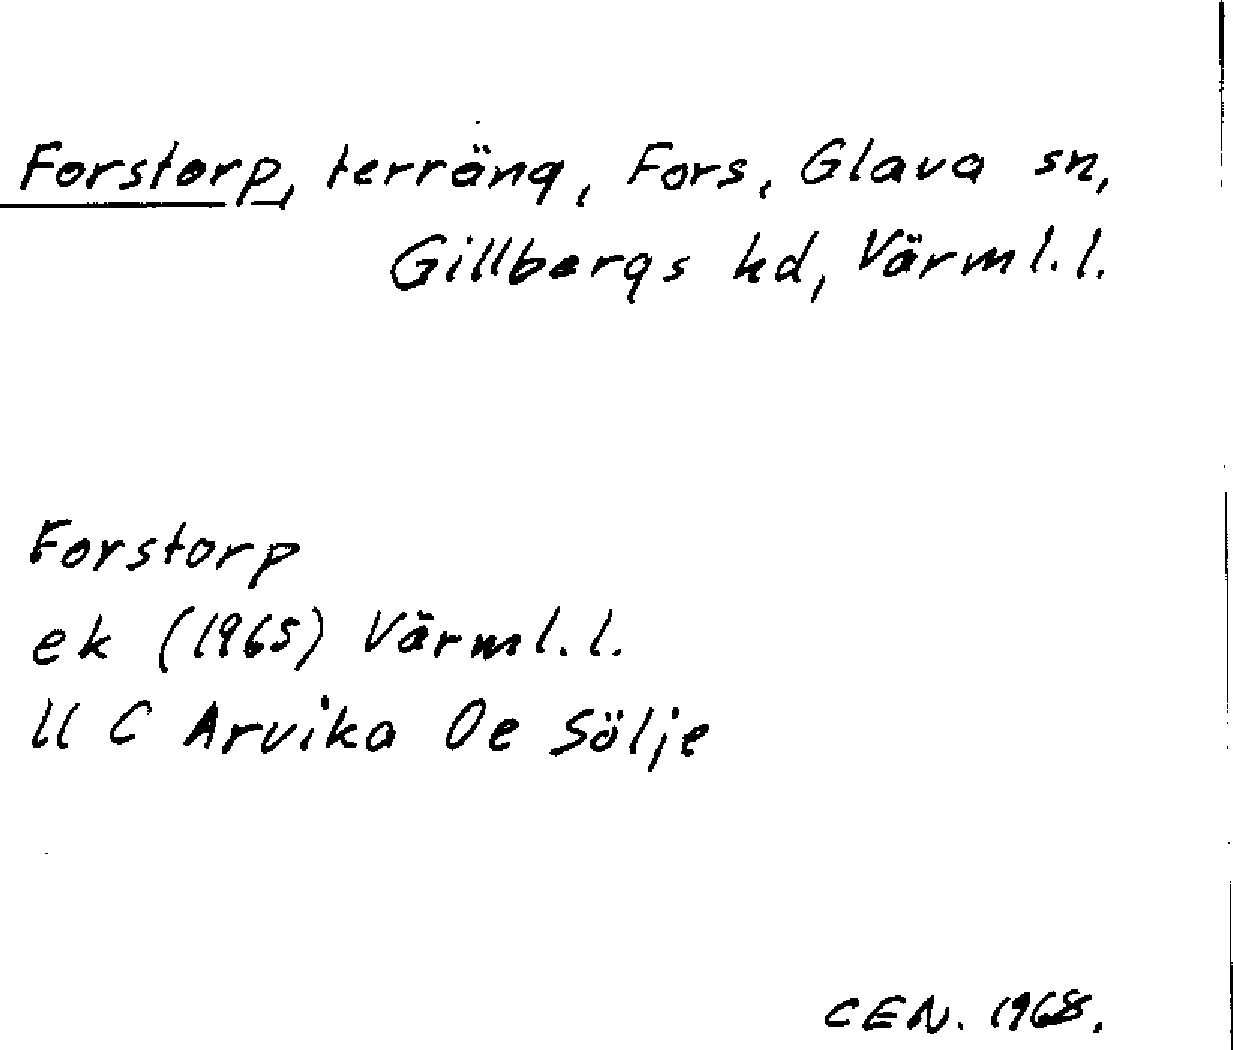 Forstorp, terräng, Fors, Glava sn,
Gillbergs hd, Värml.l.
Forstorp
ek (1965) Värml.l.
11 C Arvika 0e Sölje
CEN. 1968.